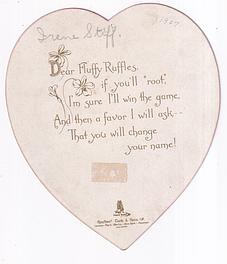 Irene Staff.
1907
Dear Fluffy Ruffles,
if you'll "root",
I'm sure I'll win the game,
And then a favor I will ask--
That you will change
your name!